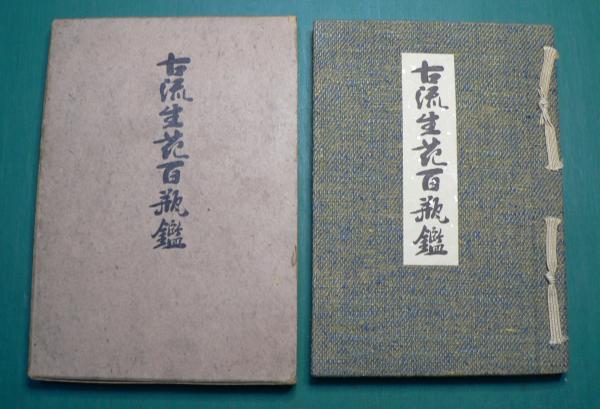 古流生花百瓶鑑
古流生花百瓶鑑